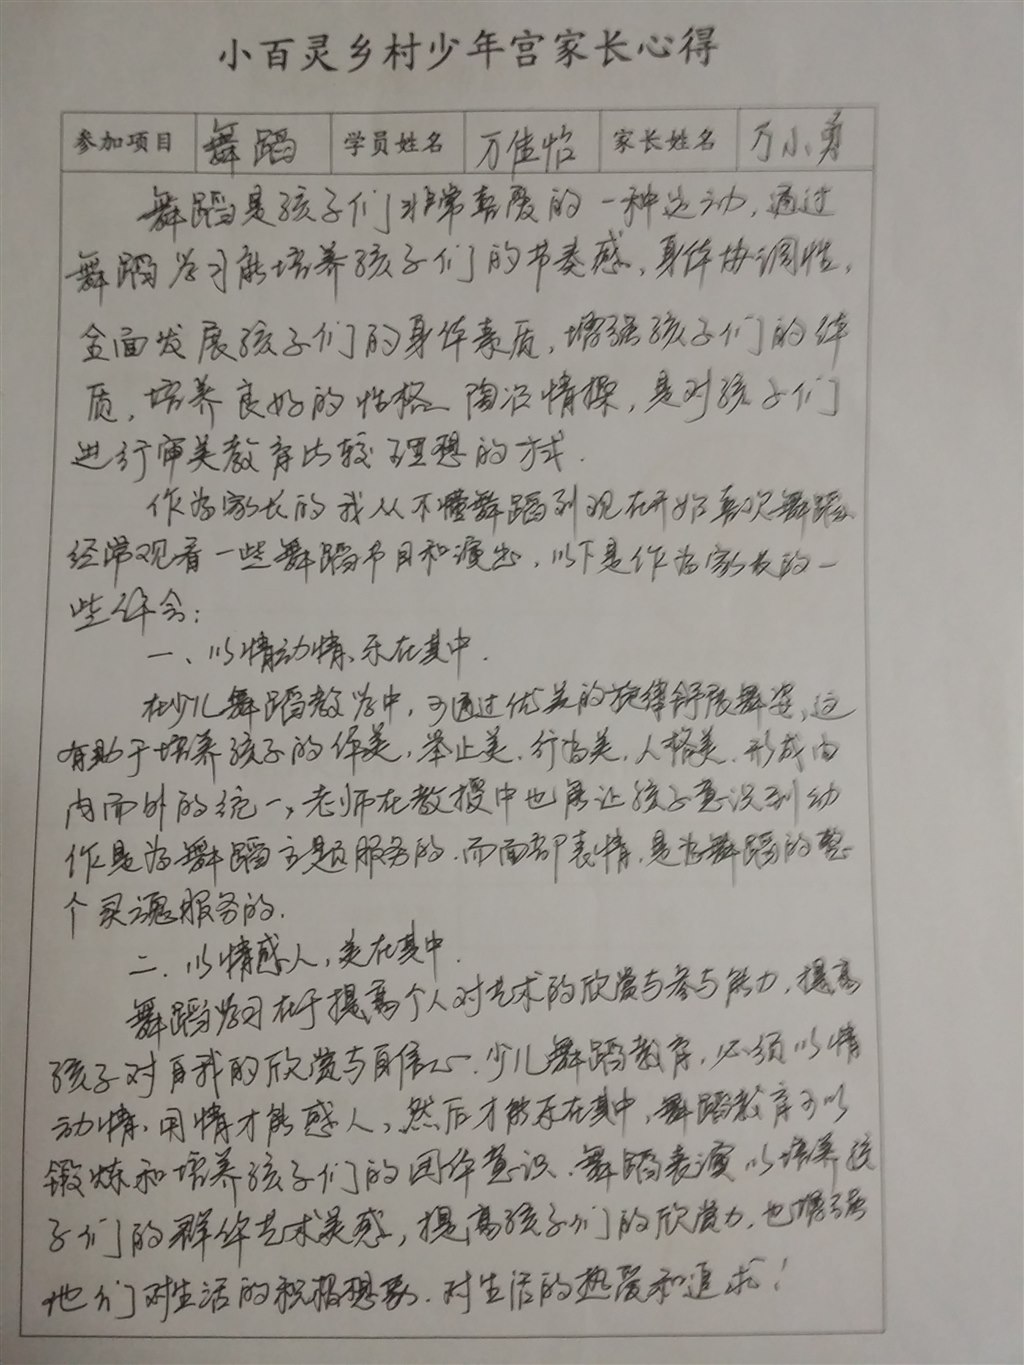 小百灵乡村少年宫家长心得
参加项目 舞蹈 学员姓名 万佳怡 家长姓名 万小勇
舞蹈是孩子们非常喜爱的一种运动，通过
舞蹈学习能培养孩子们的节奏感，身体协调性，
全面发展孩子们的身体素质，增强孩子们的体
质，培养良好的性格，陶冶情操，是对孩子们
进行审美教育比较理想的方式.
作为家长的我从不懂舞蹈到现在开始喜欢舞蹈
经常观看一些舞蹈节目和演出，以下是作为家长的一
些体会：
一、以情动情、乐在其中.
在少儿舞蹈教学中，可通过优美的旋律舒展舞姿，这
有助于培养孩子的体美，举止美，行为美，人格美，形成由
内而外的统一，老师在教授中也會让孩子意识到动
作是为舞蹈主题服务的，而面部表情，是为舞蹈的整
个灵魂服务的.
二、以情感人，美在其中.
舞蹈学习在于提高个人对艺术的欣赏与参与能力，提高
孩子对自我的欣赏与自信心.少儿舞蹈教育，必须以情
动情，用情才能感人，然后才能乐在其中，舞蹈教育可以
锻炼和培养孩子们的团体意识.舞蹈表演以培养孩
子们的群体艺术灵感，提高孩子们的欣赏力，也增强
他们对生活的积极想象.对生活的热爱和追求！